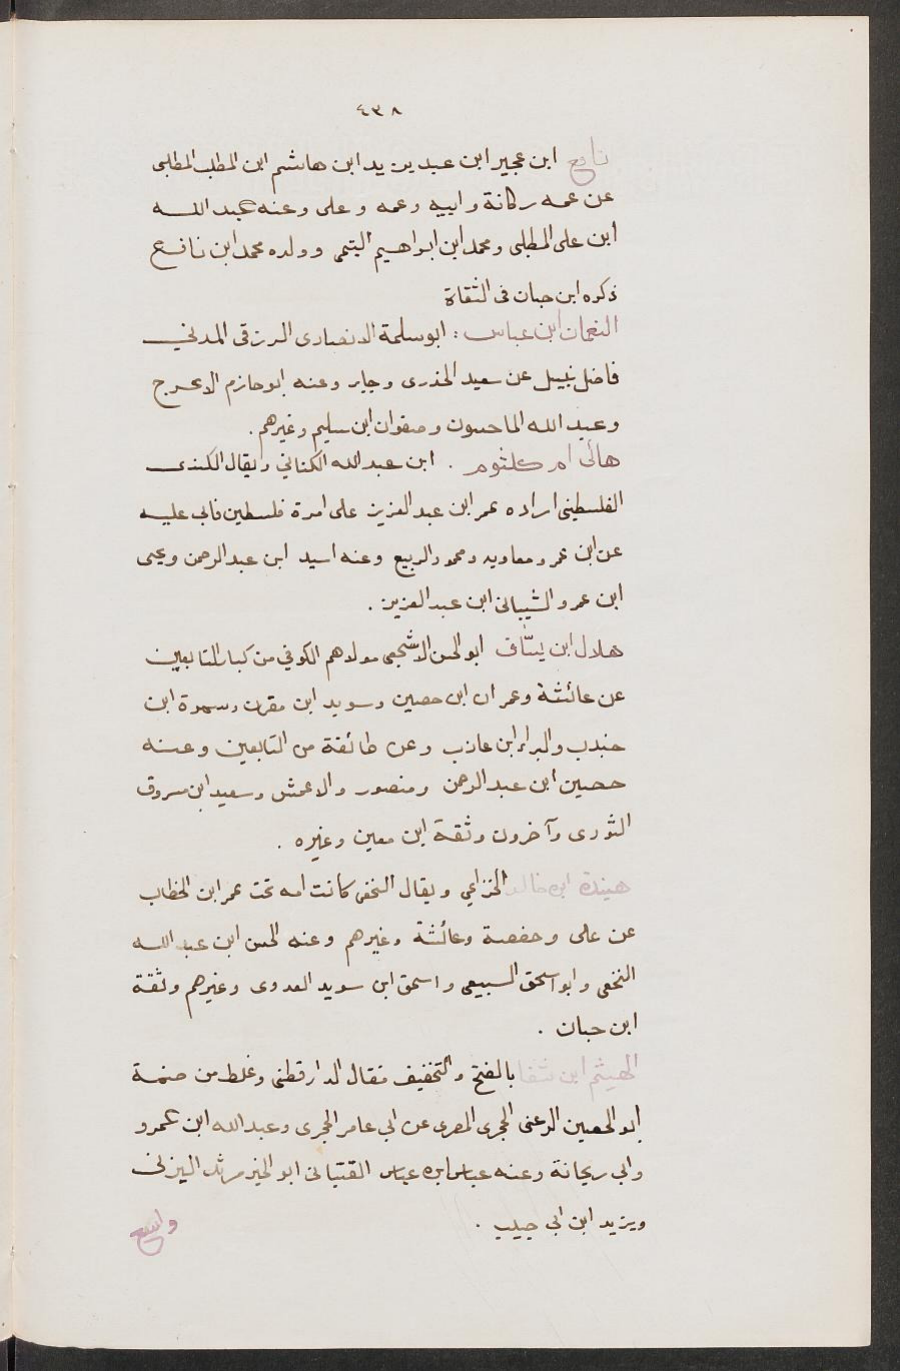 ٤٣٨
نافع ابن عجير ابن عبد يزيد ابن هاشم ابن المطلب المطلبى
عن عمه ركانة وابيه وعمه وعلى وعنه عبد الله
ابن على المطلبى ومحمد ابن ابراهيم التيمى وولده محمد ابن نافع
ذكره ابن حبان فى الثقاة
النعمان ابن عباس : ابو سلمة الانصارى الزرقى المدني
فاضل نبيل عن سعيد الخدرى وجابر وعنه ابو حازم الاعرج
وعبد الله الماحسون وصفوان ابن سليم وغيرهم .
هانى ام كلثوم . ابن عبد الله الكناني ويقال الكندى
الفلسطينى اراده عمر ابن عبد العزيز على امرة فلسطين فابى عليه
عن ابن عمر ومعاويه ومحمود الربيع وعنه اسيد ابن عبد الرحمن ويحيى
ابن عمرو الشيبانى ابن عبد العزيز .
هلال ابن يساف ابو الحسن الاشجعى مولاهم الكوفي من كبار التابعين
عن عائشة وعمران ابن حصين وسويد ابن مقرن وسمرة ابن
جندب والبراء ابن عازب وعن طائفة من التابعين وعنه
حصين ابن عبد الرحمن ومنصور والاعمش وسعيد ابن مسروق
الثورى وآخرون وثقة ابن معين وغيره .
هنيدة ابن خالد الخزاعي ويقال النخعى كانت امه تحت عمر ابن الخطاب
عن على وحفصة وعائشة وغيرهم وعنه الحسن ابن عبد الله
النخعى وابو اسحق السبيعى واسحق ابن سويد العدوى وغيرهم وثقة
ابن حبان .
الهيثم ابن شفا بالفتح والتخفيف فقال الدارقطنى وغلط من ضمة
ابو الحصين الرعنى الحجرى المصرى عن ابي عامر الحجرى وعبد الله ابن عمرو
وابي ريحانة وعنه عباس ابن عباس القتبانى ابو الخير مرثد اليزنى
ويزيد ابن ابي حبيب .
واسع